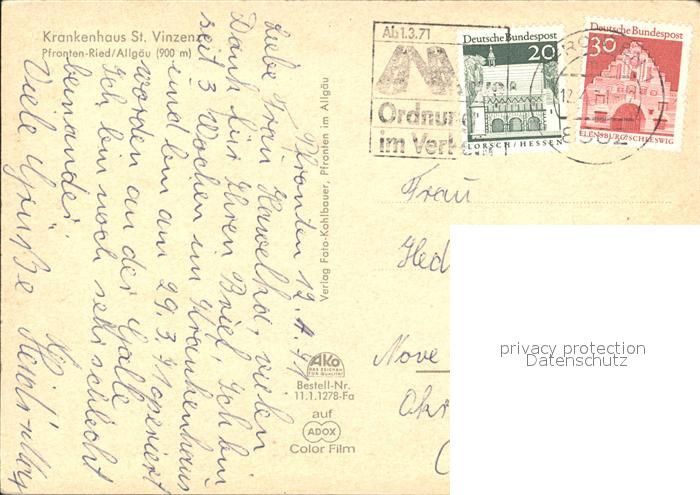 Krankenhaus St. Vinzenz
Pfronten-Ried/Allgäu (900 m)
Pfronten 12.4.71
Liebe Frau Havelhoi, vielen
Dank für Ihren Brief. Ich bin
seit 3 Wochen im Krankenhaus
und bin am 29.3.71 operiert
worden an der Galle
Ich bin noch sehr schlecht
beinander.
Viele Grüße
Verlag Foto-Kohlbauer, Pfronten im Allgäu
AKO
DAS ZEICHEN
FÜR QUALITÄT
Bestell-Nr.
11.1.1278-Fa
auf
ADOX
Color Film
Ab 1.3.71
Ordnun
im Verk
Deutsche Bundespost
20
LORSCH/HESSEN
Deutsche Bundespost
30
FLENSBURG/SCHLESWIG
12.4
Frau
Hed
Nove
privacy protection
Datenschutz